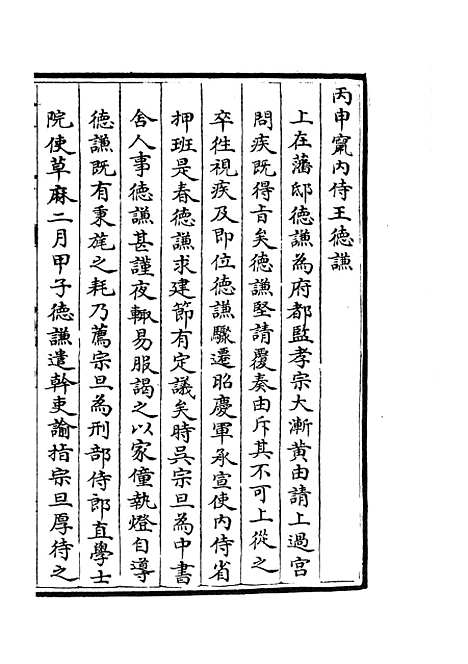 丙申竄內侍王德謙
上在藩邸德謙為府都監孝宗大漸黃由請上過宮
問疾既得旨矣德謙堅請覆奏由斥其不可上從之
卒徃視疾及即位德謙驟遷昭慶軍承宣使內侍省
押班是春德謙求建節有定議矣時吳宗旦為中書
舍人事德謙甚謹夜輙易服謁之以家僮執燈自導
德謙既有秉旄之耗乃薦宗旦為刑部侍郎直學士
院使草麻二月甲子德謙遣幹吏諭指宗旦厚待之